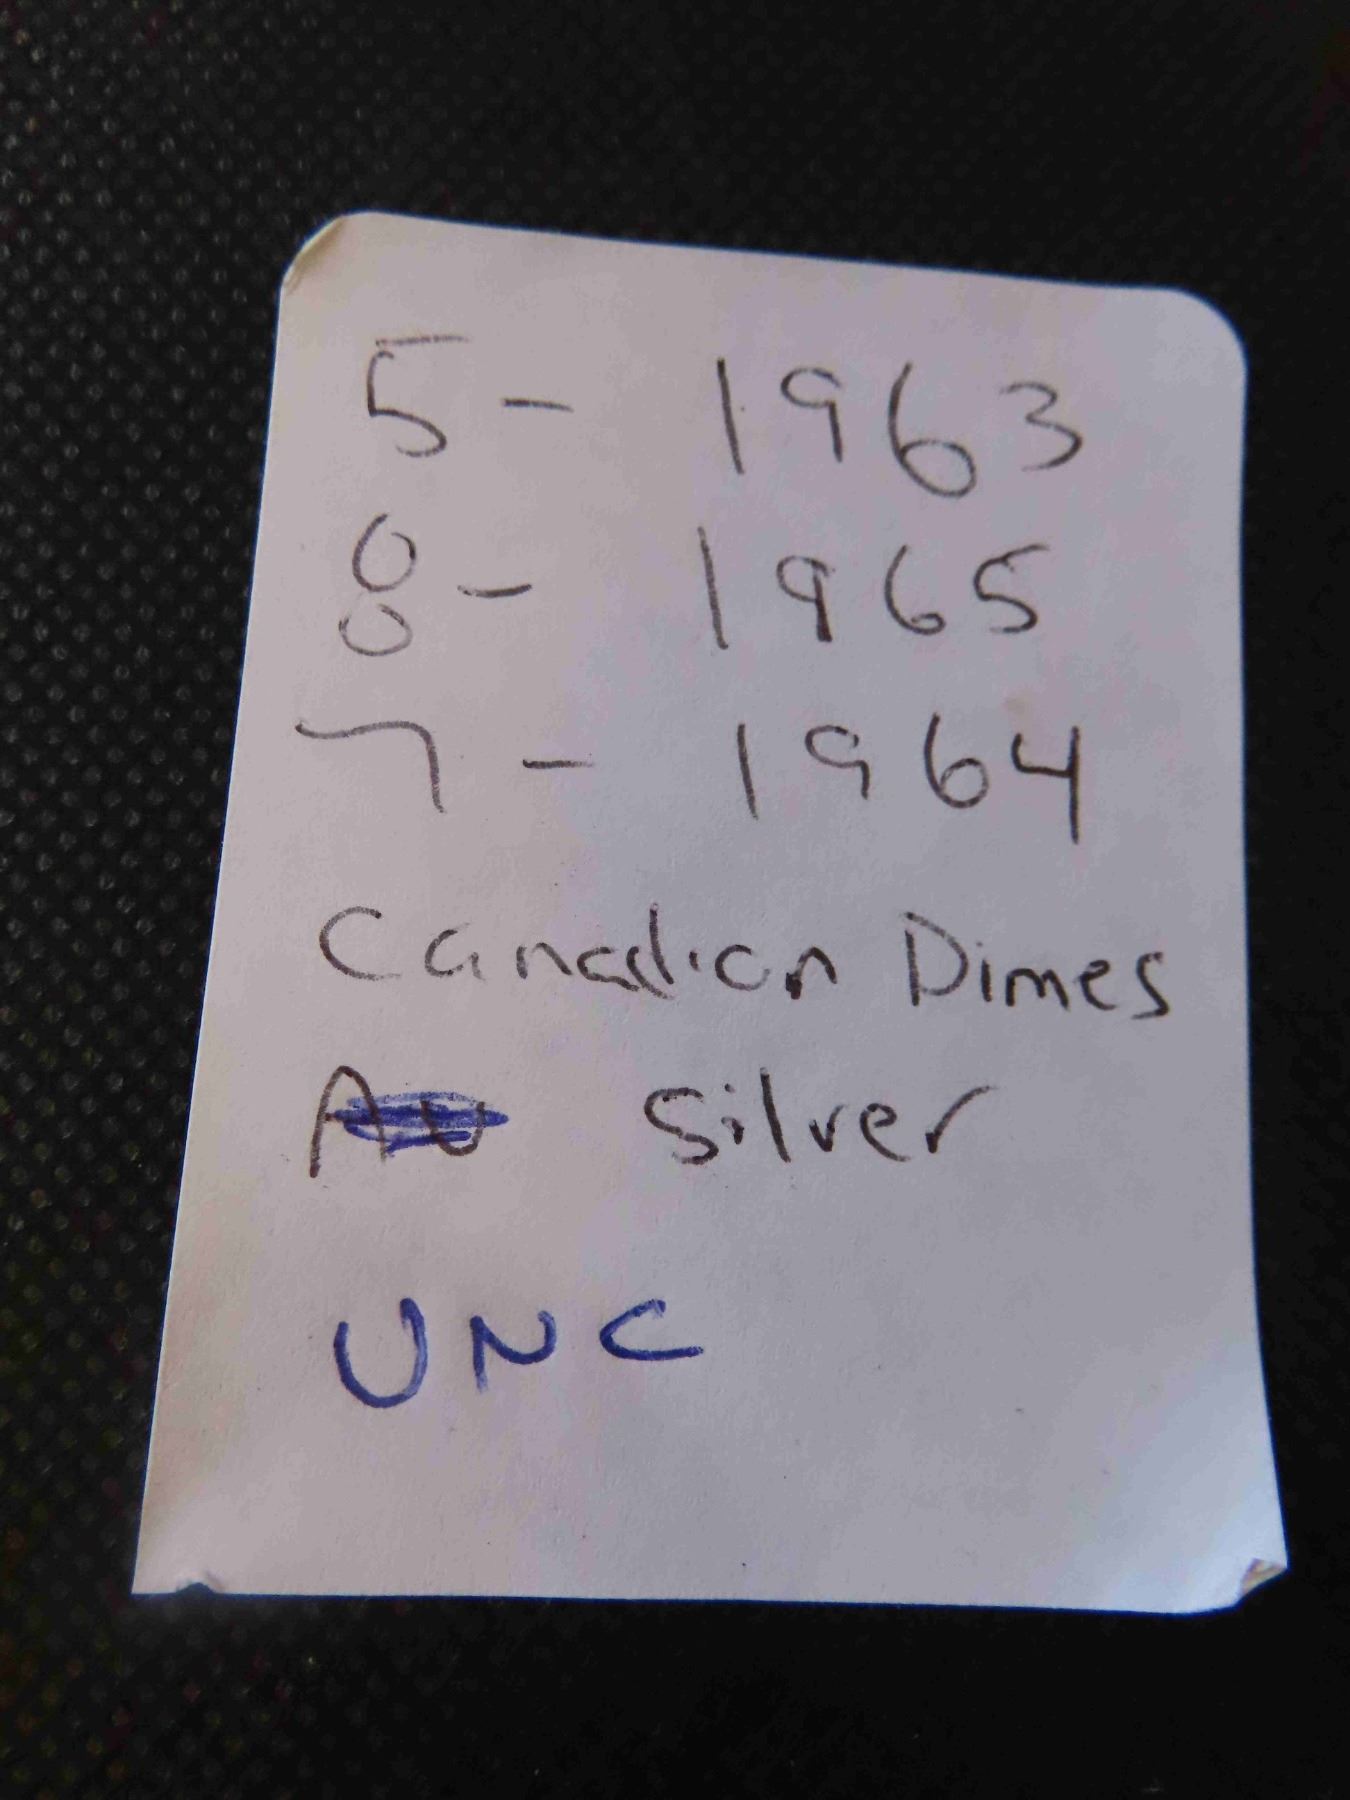 5 - 1963
8 - 1965
7 - 1964
Canadian Dimes
AU Silver
UNC